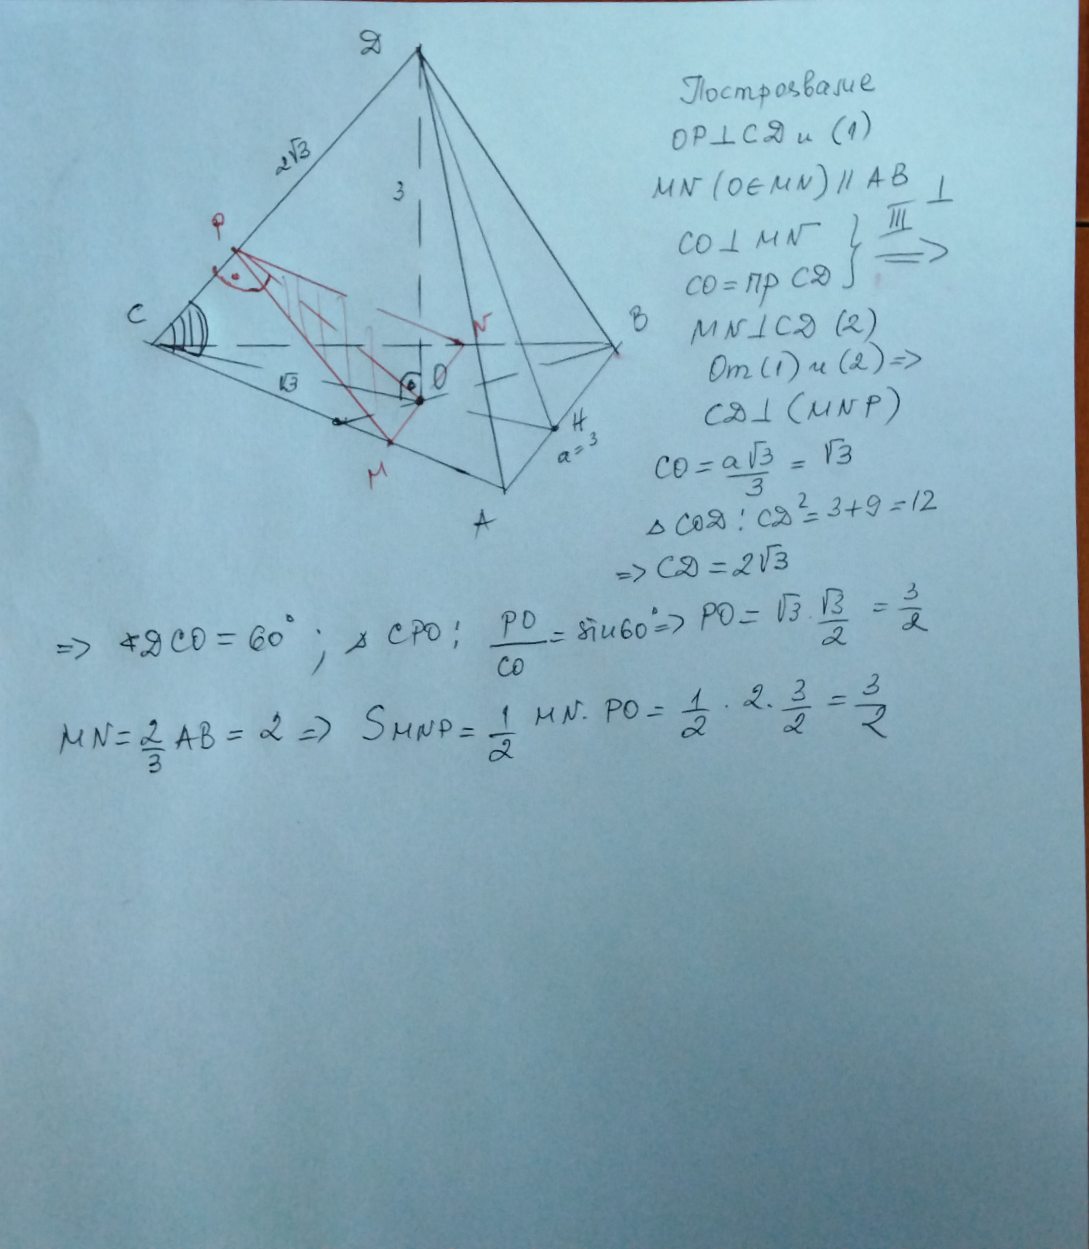 D
2√3
3
P
C
√3
O
N
B
H
a=3
M
A
Построяване
OP⊥CD и (1)
MN (O∈MN) // AB
CO⊥MN } III ⊥
CO=пр CD } =>
MN⊥CD (2)
От (1) и (2) =>
CD⊥(MNP)
CO = a√3/3 = √3
△ COD: CD² = 3+9 = 12
=> CD = 2√3
=> ∢DCO = 60° ; △ CPO: PO/CO = sin60° => PO = √3 . √3/2 = 3/2
MN = 2/3 AB = 2 => SMNP = 1/2 MN . PO = 1/2 . 2 . 3/2 = 3/2